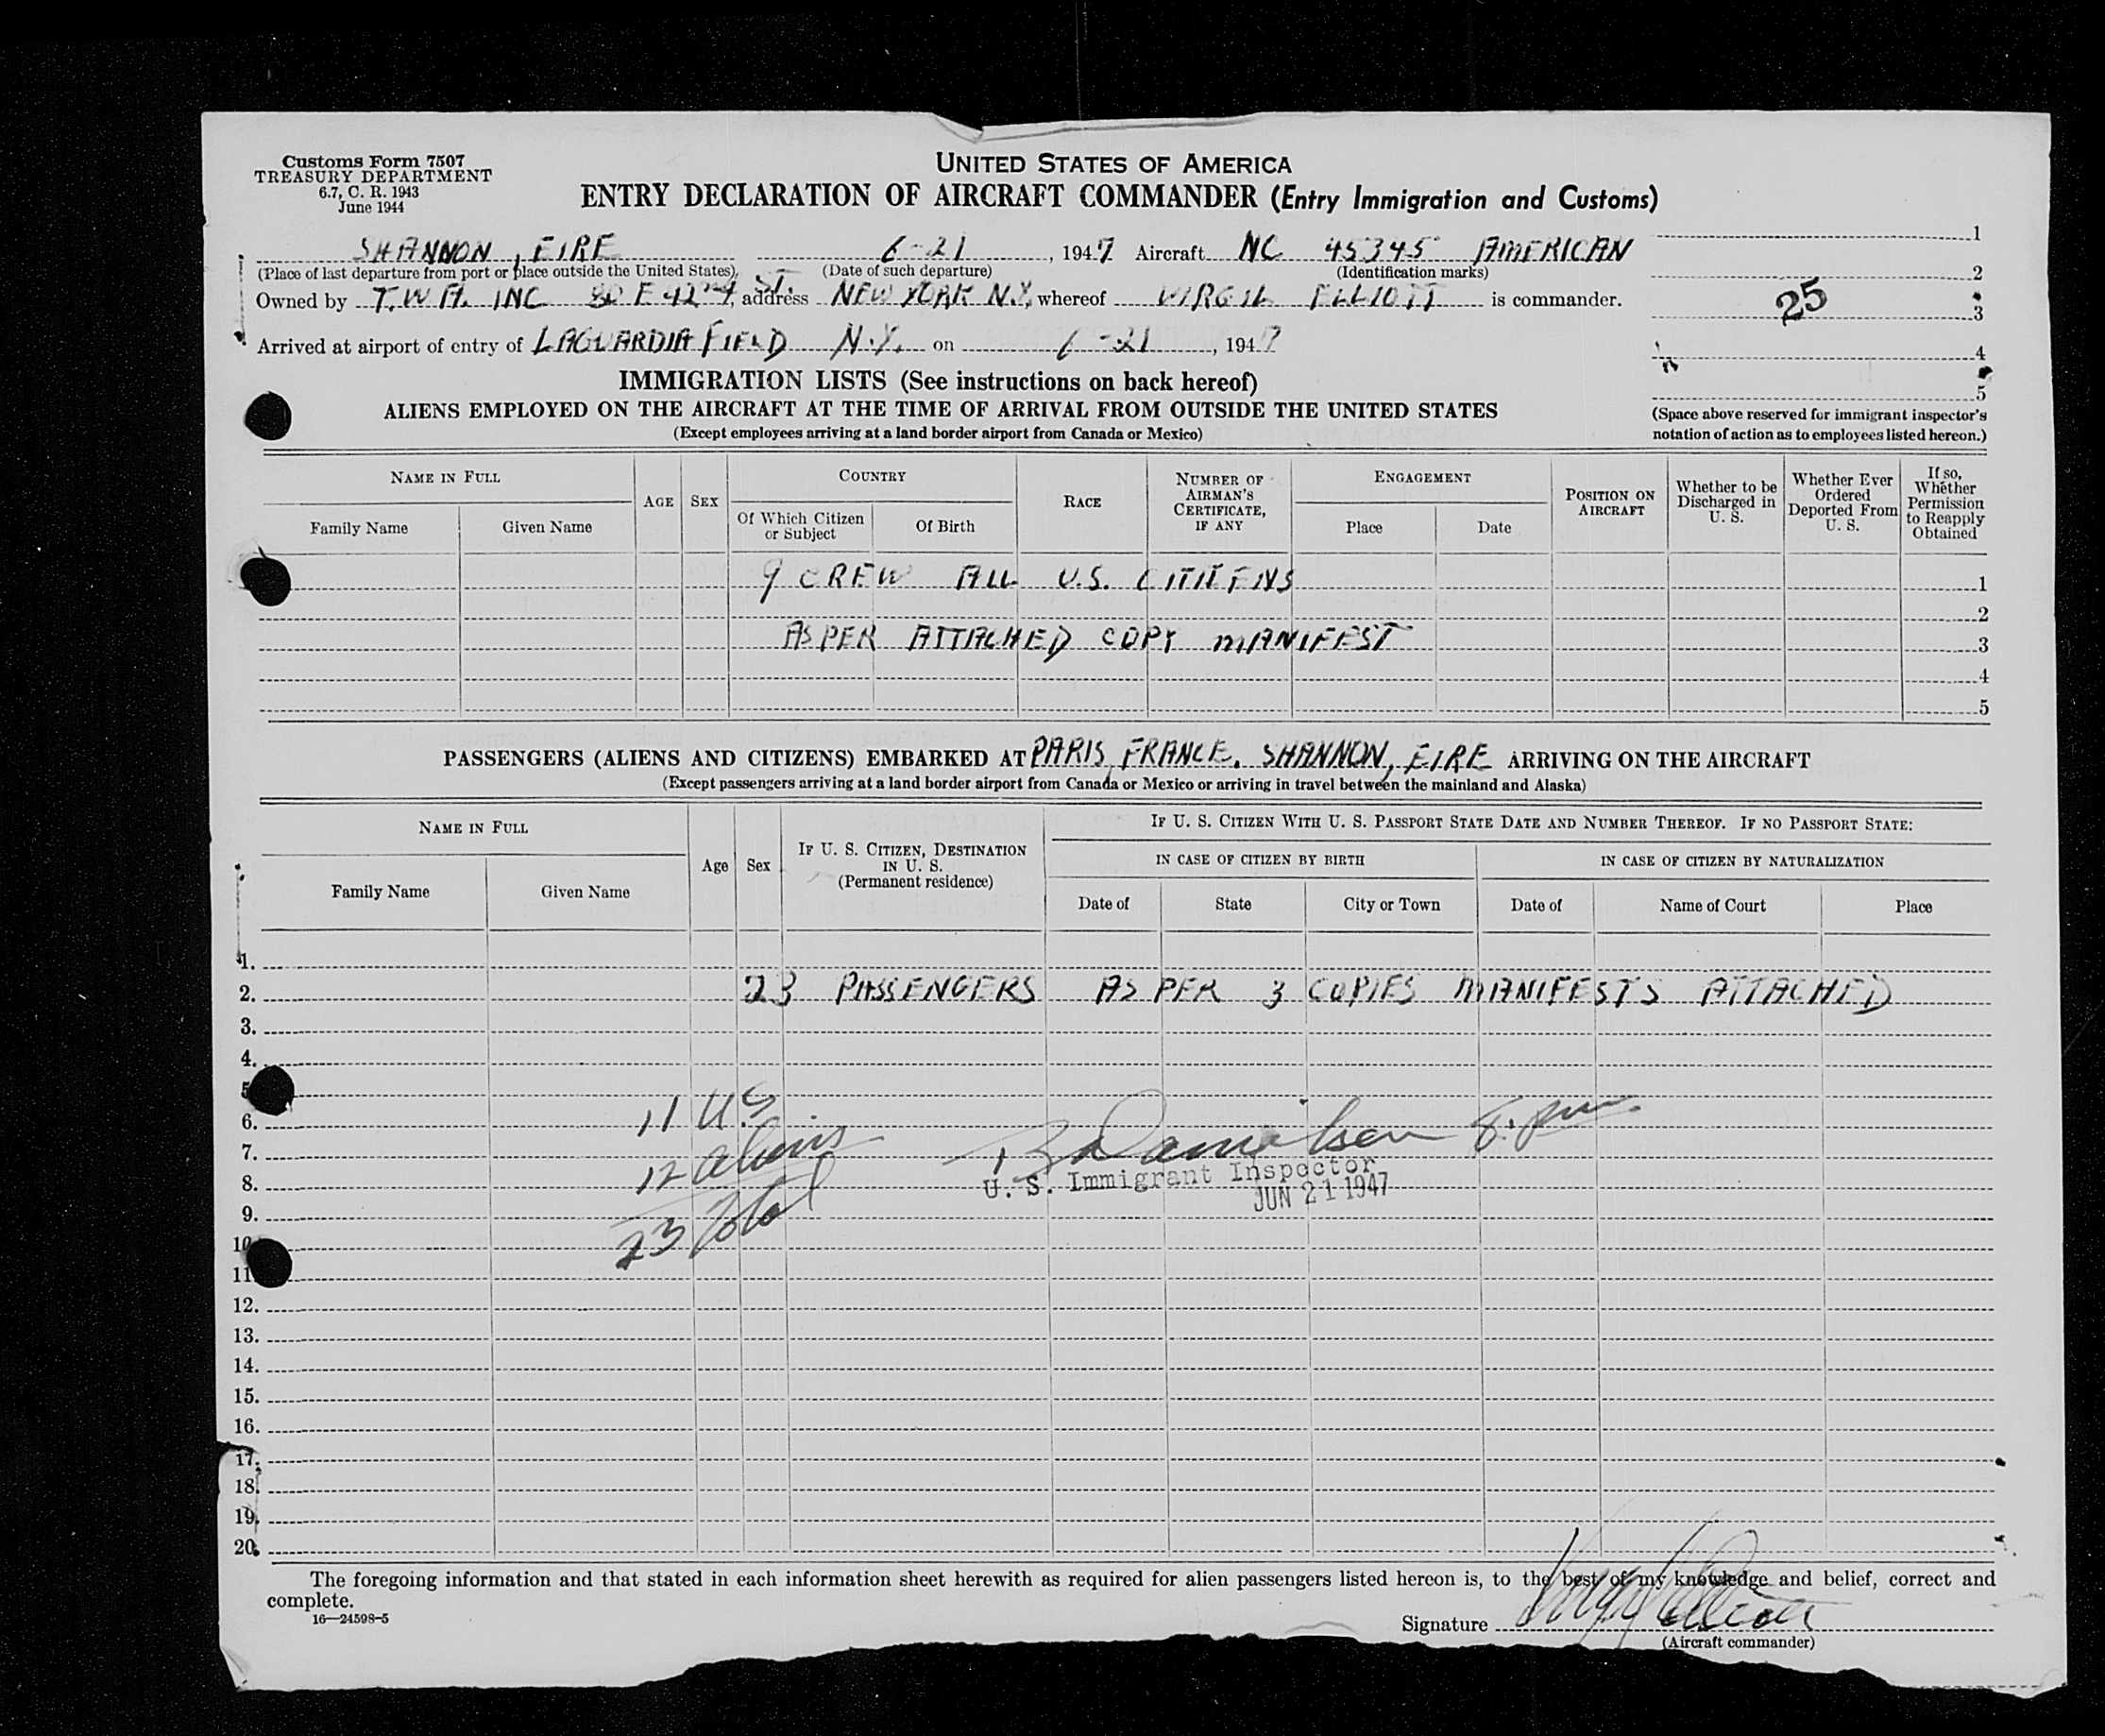 Customs Form 7507
TREASURY DEPARTMENT
6.7, C. R. 1943
June 1944
UNITED STATES OF AMERICA
ENTRY DECLARATION OF AIRCRAFT COMMANDER (Entry Immigration and Customs)
SHANNON, EIRE 6-21, 1947 Aircraft NC 45345 AMERICAN
(Place of last departure from port or place outside the United States) (Date of such departure) (Identification marks)
Owned by T.W.A. INC 80 E 42nd ST. address NEW YORK N.Y., whereof VIRGIL ELLIOTT is commander.
Arrived at airport of entry of LAGUARDIA FIELD N.Y. on 6-21, 1947
1
2
25 3
4
5
(Space above reserved for immigrant inspector's
notation of action as to employees listed hereon.)
IMMIGRATION LISTS (See instructions on back hereof)
ALIENS EMPLOYED ON THE AIRCRAFT AT THE TIME OF ARRIVAL FROM OUTSIDE THE UNITED STATES
(Except employees arriving at a land border airport from Canada or Mexico)
NAME IN FULL
Family Name
Given Name
AGE
SEX
COUNTRY
Of Which Citizen or Subject
Of Birth
RACE
NUMBER OF AIRMAN'S CERTIFICATE, IF ANY
ENGAGEMENT
Place
Date
POSITION ON AIRCRAFT
Whether to be Discharged in U. S.
Whether Ever Ordered Deported From U. S.
If so, Whether Permission to Reapply Obtained
9 CREW ALL U.S. CITIZENS 1
2
AS PER ATTACHED COPY MANIFEST 3
4
5
PASSENGERS (ALIENS AND CITIZENS) EMBARKED AT PARIS, FRANCE. SHANNON, EIRE ARRIVING ON THE AIRCRAFT
(Except passengers arriving at a land border airport from Canada or Mexico or arriving in travel between the mainland and Alaska)
NAME IN FULL
Family Name
Given Name
Age
Sex
IF U. S. CITIZEN, DESTINATION IN U. S.
(Permanent residence)
IF U. S. CITIZEN WITH U. S. PASSPORT STATE DATE AND NUMBER THEREOF. IF NO PASSPORT STATE:
IN CASE OF CITIZEN BY BIRTH
IN CASE OF CITIZEN BY NATURALIZATION
Date of
State
City or Town
Date of
Name of Court
Place
1.
2. 23 PASSENGERS AS PER 3 COPIES MANIFESTS ATTACHED
3.
4.
5
6. 11 U.S.
7. 12 aliens
8. U. S. Immigrant Inspector
JUN 21 1947
9.
10 23 Total
11.
12.
13.
14.
15.
16.
17.
18.
19.
20.
The foregoing information and that stated in each information sheet herewith as required for alien passengers listed hereon is, to the best of my knowledge and belief, correct and
complete.
16—24598-5
Signature Virgil Elliott
(Aircraft commander)